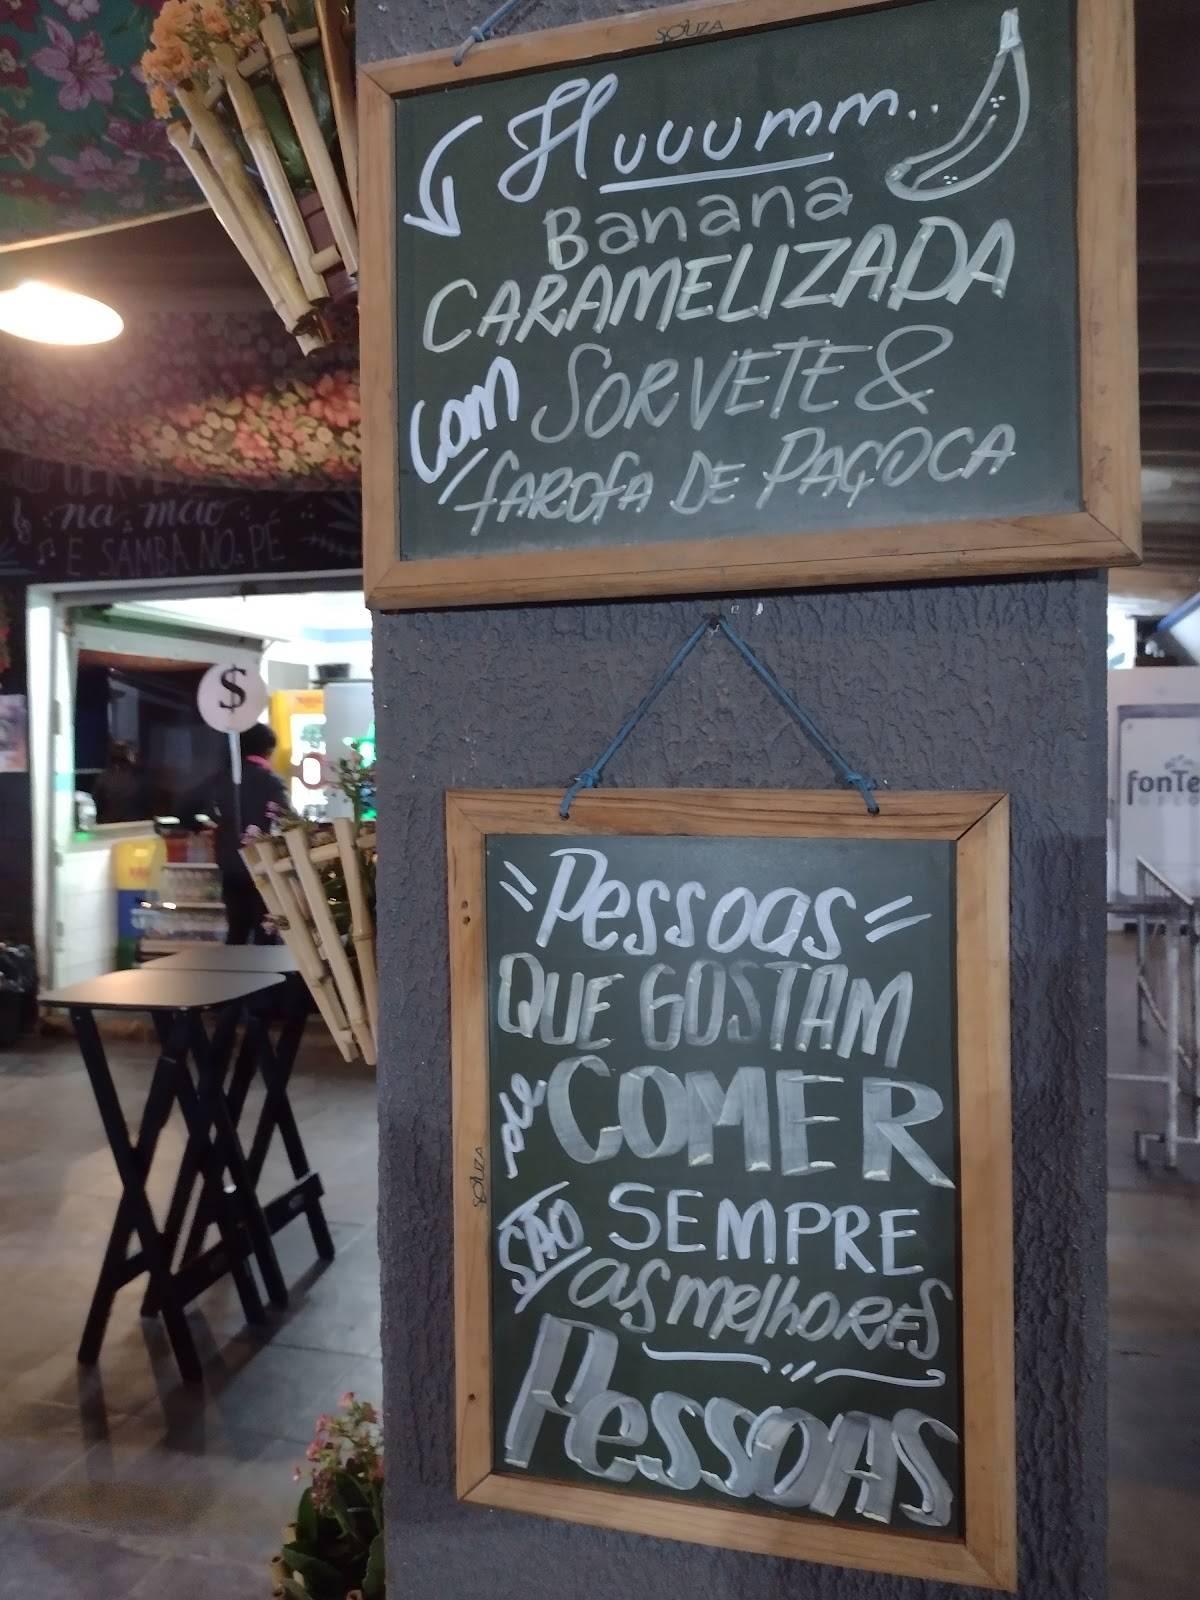 SOUZA
Huuumm..
Banana
CARAMELIZADA
com SORVETE &
FAROFA DE PAÇOCA
na mão
E SAMBA NO PÉ
$
fonTe
"Pessoas"
QUE GOSTAM
de COMER
SÃO SEMPRE
as melhores
Pessoas
SOUZA